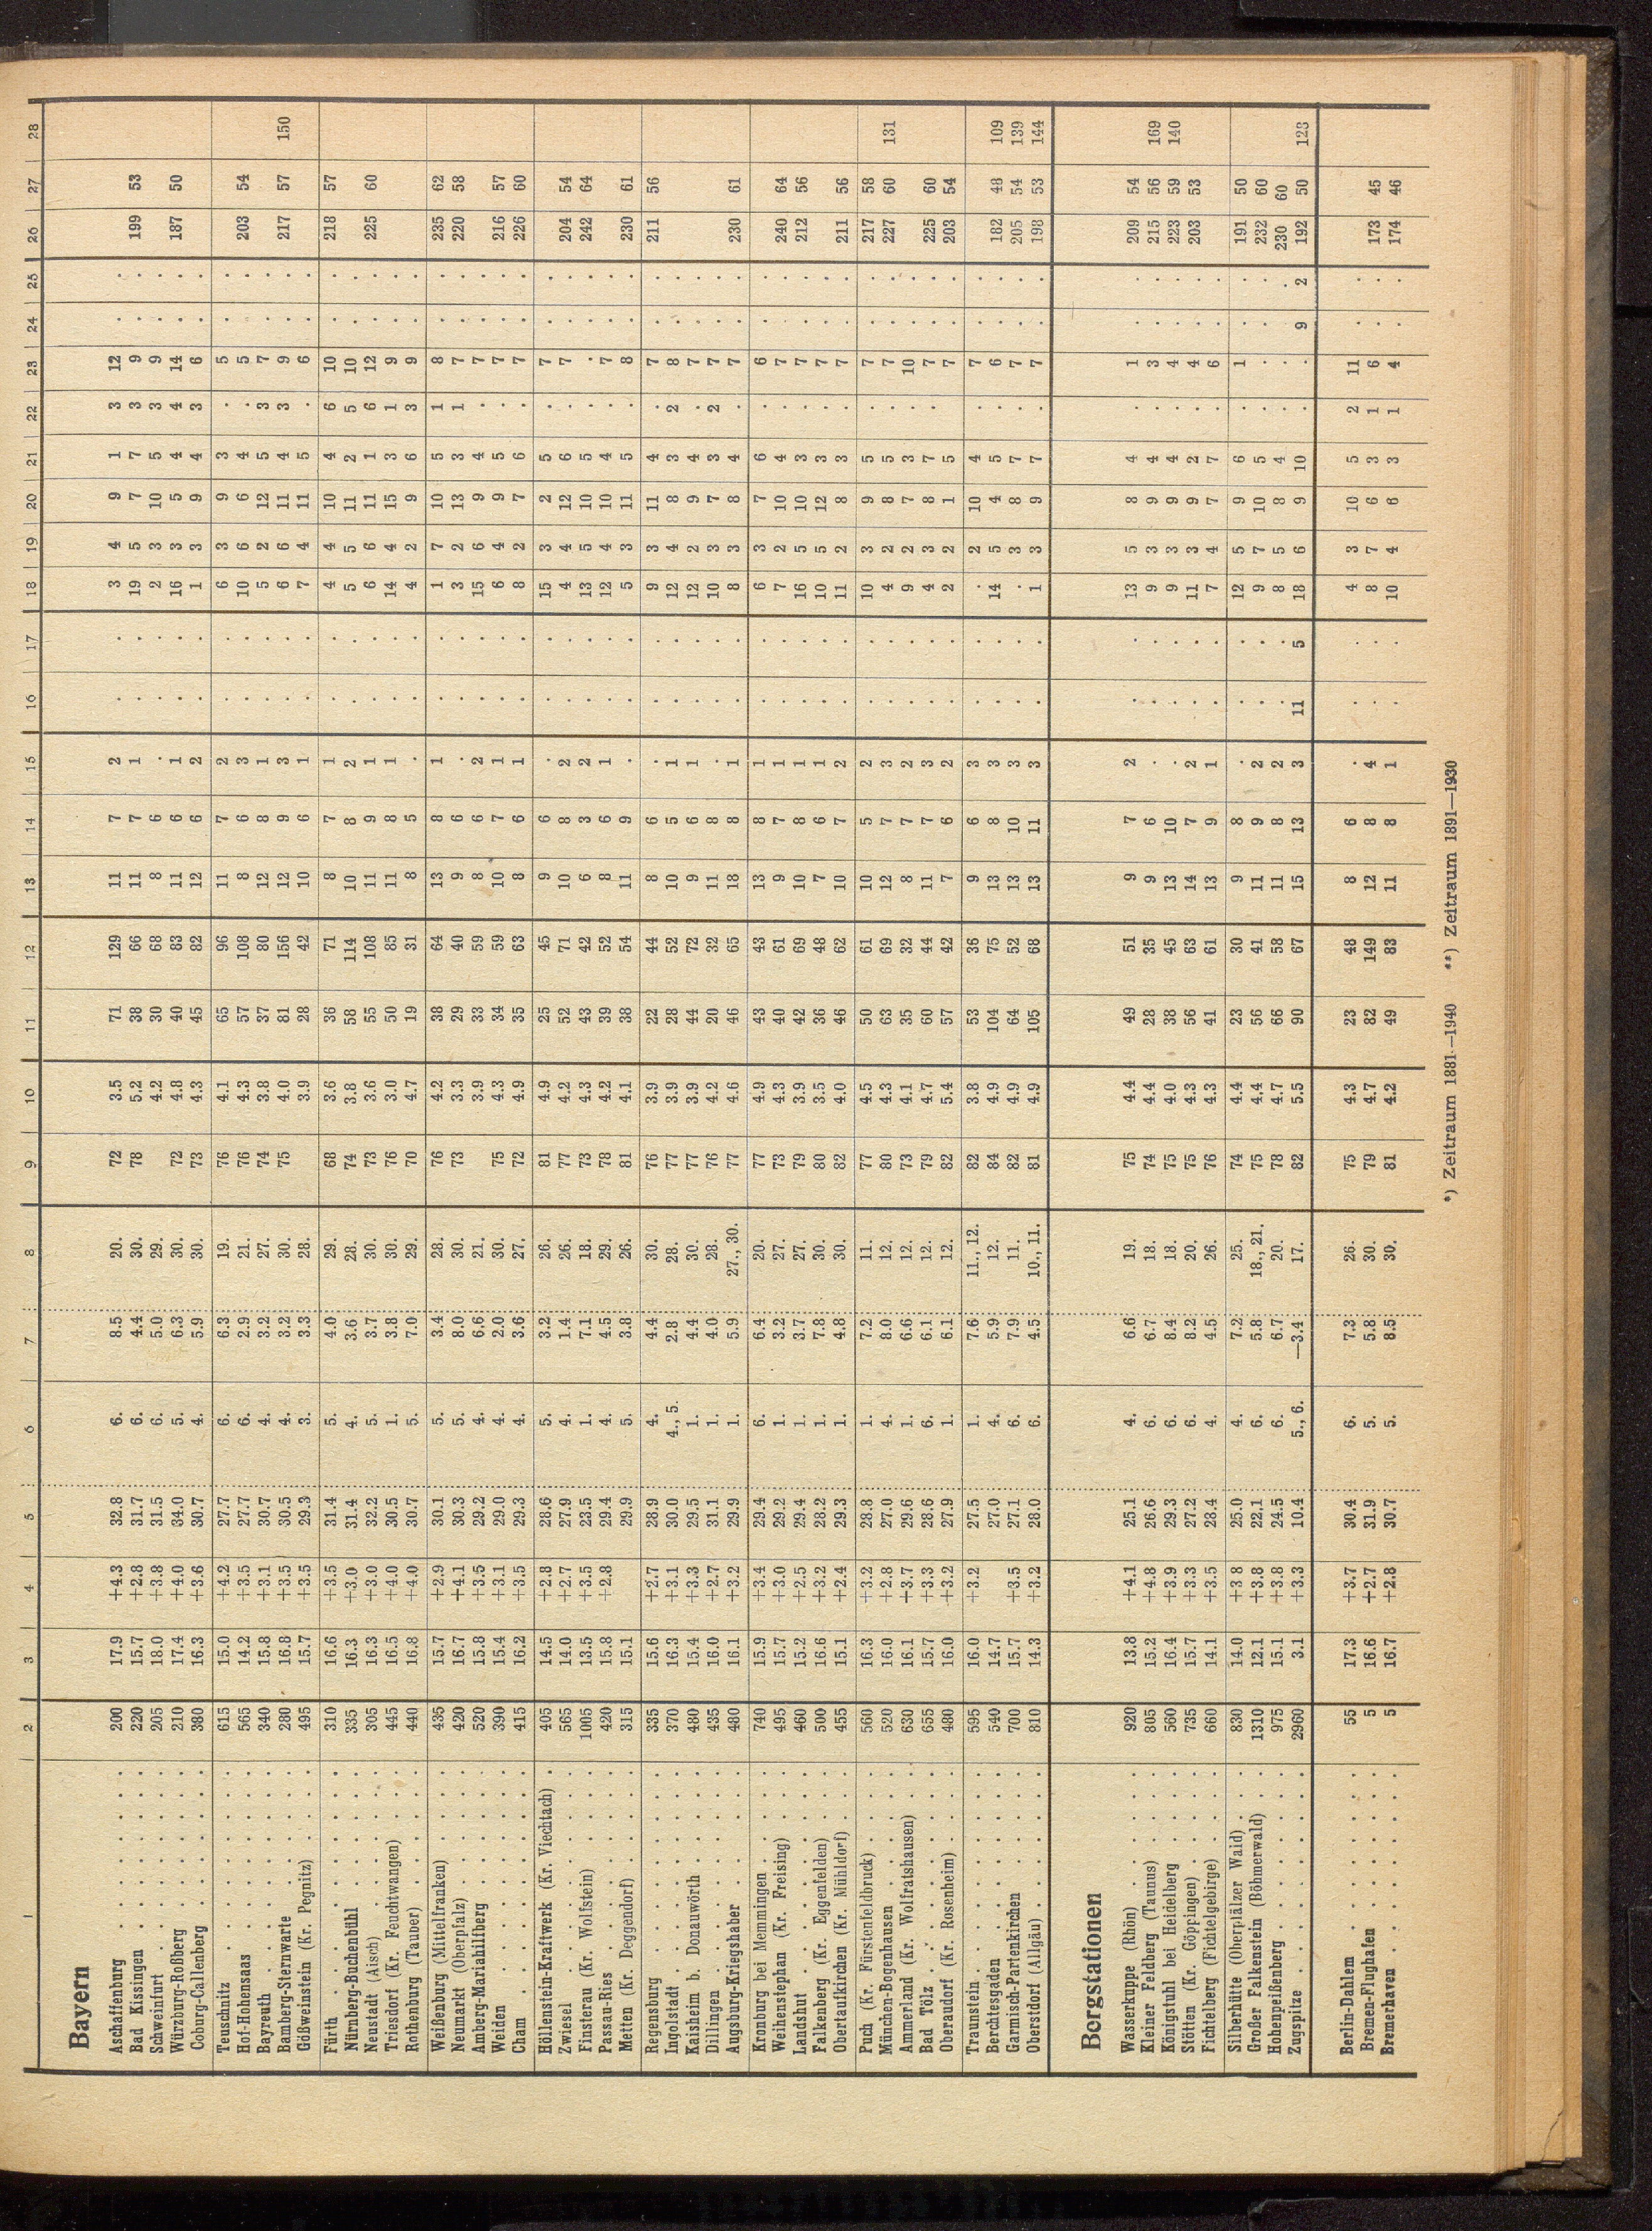 1 2 3 4 5 6 7 8 9 10 11 12 13 14 15 16 17 18 19 20 21 22 23 24 25 26 27 28
Bayern
Aschaffenburg . . . . . . . 200 17.9 +4.3 32.8 6. 8.5 20. 72 3.5 71 129 11 7 2 . . 3 4 9 1 3 12 . .
Bad Kissingen . . . . . . 220 15.7 +2.8 31.7 6. 4.4 30. 78 5.2 38 66 11 7 1 . . 19 5 7 7 3 9 . . 199 53
Schweinfurt . . . . . . . 205 18.0 +3.8 31.5 6. 5.0 29. 4.2 30 68 8 6 . . . 2 3 10 5 3 9 . .
Würzburg-Roßberg . . . . . 210 17.4 +4.0 34.0 5. 6.3 30. 72 4.8 40 83 11 6 1 . . 16 3 5 4 4 14 . . 187 50
Coburg-Callenberg . . . . . 380 16.3 +3.6 30.7 4. 5.9 30. 73 4.3 45 82 12 6 2 . . 1 3 9 4 3 6 . .
Teuschnitz . . . . . . . 615 15.0 +4.2 27.7 6. 6.3 19. 76 4.1 65 96 11 7 2 . . 6 3 9 3 . 5 . .
Hof-Hohensaas . . . . . . 565 14.2 +3.5 27.7 6. 2.9 21. 76 4.3 57 108 8 6 3 . . 10 6 6 4 . 5 . . 203 54
Bayreuth . . . . . . . 340 15.8 +3.1 30.7 4. 3.2 27. 74 3.8 37 80 12 8 1 . . 5 2 12 5 3 7 . .
Bamberg-Sternwarte . . . . . 280 16.8 +3.5 30.5 4. 3.2 30. 75 4.0 81 156 12 9 3 . . 6 6 11 4 3 9 . . 217 57 150
Gößweinstein (Kr. Pegnitz) . . . 495 15.7 +3.5 29.3 3. 3.3 28. 3.9 28 42 10 6 1 . . 7 4 11 5 . 6 . .
Fürth . . . . . . . . 310 16.6 +3.5 31.4 5. 4.0 29. 68 3.6 36 71 8 7 1 . . 4 4 10 4 6 10 . . 218 57
Nürnberg-Buchenbühl . . . . 335 16.3 +3.0 31.4 4. 3.6 28. 74 3.8 58 114 10 8 2 . . 5 5 11 2 5 10 . .
Neustadt (Aisch) . . . . . . 305 16.3 +3.0 32.2 5. 3.7 30. 73 3.6 55 108 11 9 1 . . 6 6 11 1 6 12 . . 225 60
Triesdorf (Kr. Feuchtwangen) . . . 445 16.5 +4.0 30.5 1. 3.8 30. 76 3.0 50 85 11 8 1 . . 14 4 15 3 1 9 . .
Rothenburg (Tauber) . . . . . 440 16.8 +4.0 30.7 5. 7.0 29. 70 4.7 19 31 8 5 . . . 4 2 9 6 3 9 . .
Weißenburg (Mittelfranken) . . . 435 15.7 +2.9 30.1 5. 3.4 28. 76 4.2 38 64 13 8 1 . . 1 7 10 5 1 8 . . 235 62
Neumarkt (Oberpfalz) . . . . . 420 16.7 +4.1 30.3 5. 8.0 30. 73 3.3 29 40 9 6 . . . 3 2 13 3 1 7 . . 220 58
Amberg-Mariahilfberg . . . . 520 15.8 +3.5 29.2 4. 6.6 21. 3.9 33 59 8 6 2 . . 15 6 9 4 . 7 . .
Weiden . . . . . . . 390 15.4 +3.1 29.0 4. 2.0 30. 75 4.3 34 59 10 7 1 . . 6 4 9 5 . 7 . . 216 57
Cham . . . . . . . . 415 16.2 +3.5 29.3 4. 3.6 27. 72 4.9 35 63 8 6 1 . . 8 2 7 6 . 7 . . 226 60
Höllenstein-Kraftwerk (Kr. Viechtach) . 405 14.5 +2.8 28.6 5. 3.2 26. 81 4.9 25 45 9 6 . . . 15 3 2 5 . 7 . .
Zwiesel . . . . . . . 565 14.0 +2.7 27.9 4. 1.4 26. 77 4.2 52 71 10 8 2 . . 4 4 12 6 . 7 . . 204 54
Finsterau (Kr. Wolfstein) . . . . 1005 13.5 +3.5 23.5 1. 7.1 18. 73 4.3 43 42 6 3 2 . . 13 5 10 5 . . . . 242 64
Passau-Ries . . . . . . . 420 15.8 +2.8 29.4 4. 4.5 29. 78 4.2 39 52 8 6 1 . . 12 4 10 4 . 7 . .
Metten (Kr. Deggendorf) . . . . 315 15.1 29.9 5. 3.8 26. 81 4.1 38 54 11 9 . . . 5 3 11 5 . 8 . . 230 61
Regensburg . . . . . . . 335 15.6 +2.7 28.9 4. 4.4 30. 76 3.9 22 44 8 6 . . . 9 3 11 4 . 7 . . 211 56
Ingolstadt . . . . . . . 370 16.3 +3.1 30.0 4., 5. 2.8 28. 77 3.9 28 52 10 5 1 . . 12 4 8 3 2 8 . .
Kaisheim b. Donauwörth . . . . 480 15.4 +3.3 29.5 1. 4.4 30. 77 3.9 44 72 9 6 1 . . 12 2 9 4 . 7 . .
Dillingen . . . . . . . 435 16.0 +2.7 31.1 1. 4.0 28. 76 4.2 20 32 11 8 . . . 10 3 7 3 2 7 . .
Augsburg-Kriegshaber . . . . 480 16.1 +3.2 29.9 1. 5.9 27., 30. 77 4.6 46 65 18 8 1 . . 8 3 8 4 . 7 . . 230 61
Kronburg bei Memmingen . . . . 740 15.9 +3.4 29.4 6. 6.4 20. 77 4.9 43 43 13 8 1 . . 6 3 7 6 . 6 . .
Weihenstephan (Kr. Freising) . . . 495 15.7 +3.0 29.2 1. 3.2 27. 73 4.3 40 61 9 7 1 . . 7 2 10 4 . 7 . . 240 64
Landshut . . . . . . . 460 15.2 +2.5 29.4 1. 3.7 27. 79 3.9 42 69 10 8 1 . . 16 5 10 3 . 7 . . 212 56
Falkenberg (Kr. Eggenfelden) . . . 500 16.6 +3.2 28.2 1. 7.8 30. 80 3.5 36 48 7 6 1 . . 10 5 12 3 . 7 . .
Obertaufkirchen (Kr. Mühldorf) . . . 455 15.1 +2.4 29.3 1. 4.8 30. 82 4.0 46 62 10 7 2 . . 11 2 8 3 . 7 . . 211 56
Puch (Kr. Fürstenfeldbruck) . . . 560 16.3 +3.2 28.8 1. 7.2 11. 77 4.5 50 61 10 5 2 . . 10 3 9 5 . 7 . . 217 58
München-Bogenhausen . . . . 520 16.0 +2.8 27.0 4. 8.0 12. 80 4.3 63 69 12 7 3 . . 4 2 8 5 . 7 . . 227 60 131
Ammerland (Kr. Wolfratshausen) . . 630 16.1 +3.7 29.6 1. 6.6 12. 73 4.1 35 32 8 7 2 . . 9 2 7 3 . 10 . .
Bad Tölz . . . . . . . 655 15.7 +3.3 28.6 6. 6.1 12. 79 4.7 60 44 11 7 3 . . 4 3 8 7 . 7 . . 225 60
Oberaudorf (Kr. Rosenheim) . . . 480 16.0 +3.2 27.9 1. 6.1 12. 82 5.4 57 42 7 6 2 . . 2 2 1 5 . 7 . . 203 54
Traunstein . . . . . . . 595 16.0 +3.2 27.5 1. 7.6 11., 12. 82 3.8 53 36 9 6 3 . . . 2 10 4 . 7 . .
Berchtesgaden . . . . . . 540 14.7 27.0 4. 5.9 12. 84 4.9 104 75 13 8 3 . . 14 5 4 5 . 6 . . 182 48 109
Garmisch-Partenkirchen . . . . 700 15.7 +3.5 27.1 6. 7.9 11. 82 4.9 64 52 13 10 3 . . . 3 8 7 . 7 . . 205 54 139
Oberstdorf (Allgäu) . . . . . 810 14.3 +3.2 28.0 6. 4.5 10., 11. 81 4.9 105 68 13 11 3 . . 1 3 9 7 . 7 . . 198 53 144
Bergstationen
Wasserkuppe (Rhön) . . . . . 920 13.8 +4.1 25.1 4. 6.6 19. 75 4.4 49 51 9 7 2 . . 13 5 8 4 . 1 . . 209 54
Kleiner Feldberg (Taunus) . . . . 805 15.2 +4.8 26.6 6. 6.7 18. 74 4.4 28 35 9 6 . . . 9 3 9 4 . 3 . . 215 56 169
Königstuhl bei Heidelberg . . . . 560 16.4 +3.9 29.3 6. 8.4 18. 75 4.0 38 45 13 10 . . . 9 3 9 4 . 4 . . 223 59 140
Stötten (Kr. Göppingen) . . . . 735 15.7 +3.3 27.2 6. 8.2 20. 75 4.3 56 63 14 7 2 . . 11 3 9 2 . 4 . . 203 53
Fichtelberg (Fichtelgebirge) . . . 660 14.1 +3.5 28.4 4. 4.5 26. 76 4.3 41 61 13 9 1 . . 7 4 7 7 . 6 . .
Silberhütte (Oberpfälzer Wald) . . . 830 14.0 +3 8 25.0 4. 7.2 25. 74 4.4 23 30 9 8 . . . 12 5 9 6 . 1 . . 191 50
Großer Falkenstein (Böhmerwald) . . 1310 12.1 +3.8 22.1 6. 5.8 18., 21. 75 4.4 56 41 11 9 2 . . 9 7 10 5 . . . . 232 60
Hohenpeißenberg . . . . . . 975 15.1 +3.8 24.5 6. 6.7 20. 78 4.7 66 58 11 8 2 . . 8 5 8 4 . . . . 230 60
Zugspitze . . . . . . . 2960 3.1 +3.3 10.4 5., 6. —3.4 17. 82 5.5 90 67 15 13 3 11 5 18 6 9 10 . . 9 2 192 50 123
Berlin-Dahlem . . . . . . 55 17.3 +3.7 30.4 6. 7.3 26. 75 4.3 23 48 8 6 . . . 4 3 10 5 2 11 . .
Bremen-Flughafen . . . . . 5 16.6 +2.7 31.9 5. 5.8 30. 79 4.7 82 149 12 8 4 . . 8 7 6 3 1 6 . . 173 45
Bremerhaven . . . . . . 5 16.7 +2.8 30.7 5. 8.5 30. 81 4.2 49 83 11 8 1 . . 10 4 6 3 1 4 . . 174 46
*) Zeitraum 1881—1940 **) Zeitraum 1891—1930